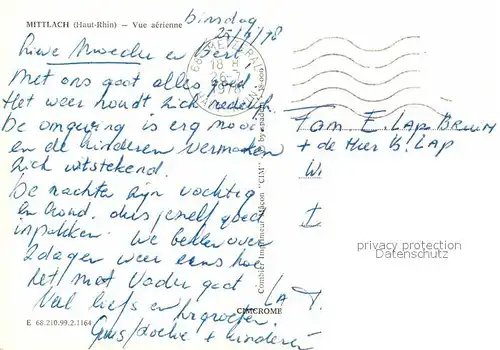 MITTLACH (Haut-Rhin) — Vue aérienne
Dinsdag
25/7/78
Lieve Moeder en Bert
Met ons gaat alles goed
Het weer houdt zich redelijk
De omgeving is erg mooi
en de kinderen vermaken
zich uitstekend.
De nachten zijn vochtig
en koud, dus jezelf goed
inpakken. We bellen over
2 dagen weer eens hoe
het met Vader gaat
Veel liefs en
groeten.
Guus/ + kinderen
E 68.210.99.2.1164
CIMCROME
Combier Imprimeur Mâcon "CIM"
18 H
26-7
1978
68
Fam E. LAP
+ de Heer B. LAP
privacy protection
DuPhi.de